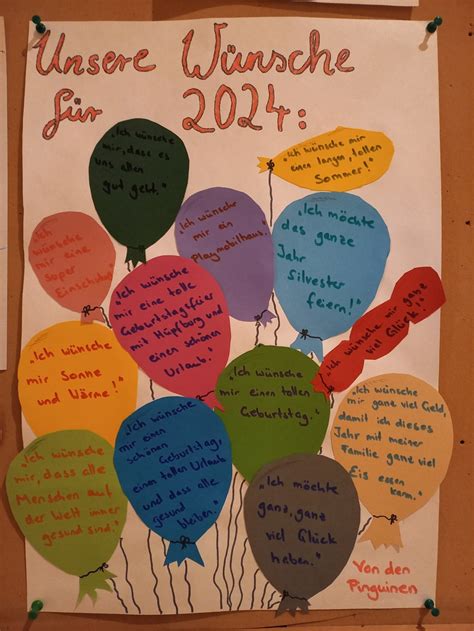 Unsere Wünsche
für 2024:
„Ich wünsche
mir, dass es
uns allen
gut geht."
„Ich wünsche mir
einen langen, tollen
Sommer!"
„Ich wünsche
mir ein
Playmobilhaus."
„Ich möchte
das ganze
Jahr
Silvester
feiern!"
„Ich
wünsche
mir eine
super
Einschulung
„Ich wünsche
mir eine tolle
Geburtstagsfeier
mit Hüpfburg und
einen schönen
Urlaub."
„Ich wünsche mir ganz
viel Glück!"
„Ich wünsche
mir Sonne
und Wärme!"
„Ich wünsche
mir einen tollen
Geburtstag."
„Ich wünsche
mir ganz viel Geld,
damit ich dieses
Jahr mit meiner
Familie ganz viel
Eis essen
kann."
„Ich wünsche
mir einen
schönen
Geburtstag,
einen tollen Urlaub
und dass alle
gesund
bleiben."
„Ich wünsche
mir, dass alle
Menschen auf
der Welt immer
gesund sind."
„Ich möchte
ganz, ganz
viel Glück
haben."
Von den
Pinguinen